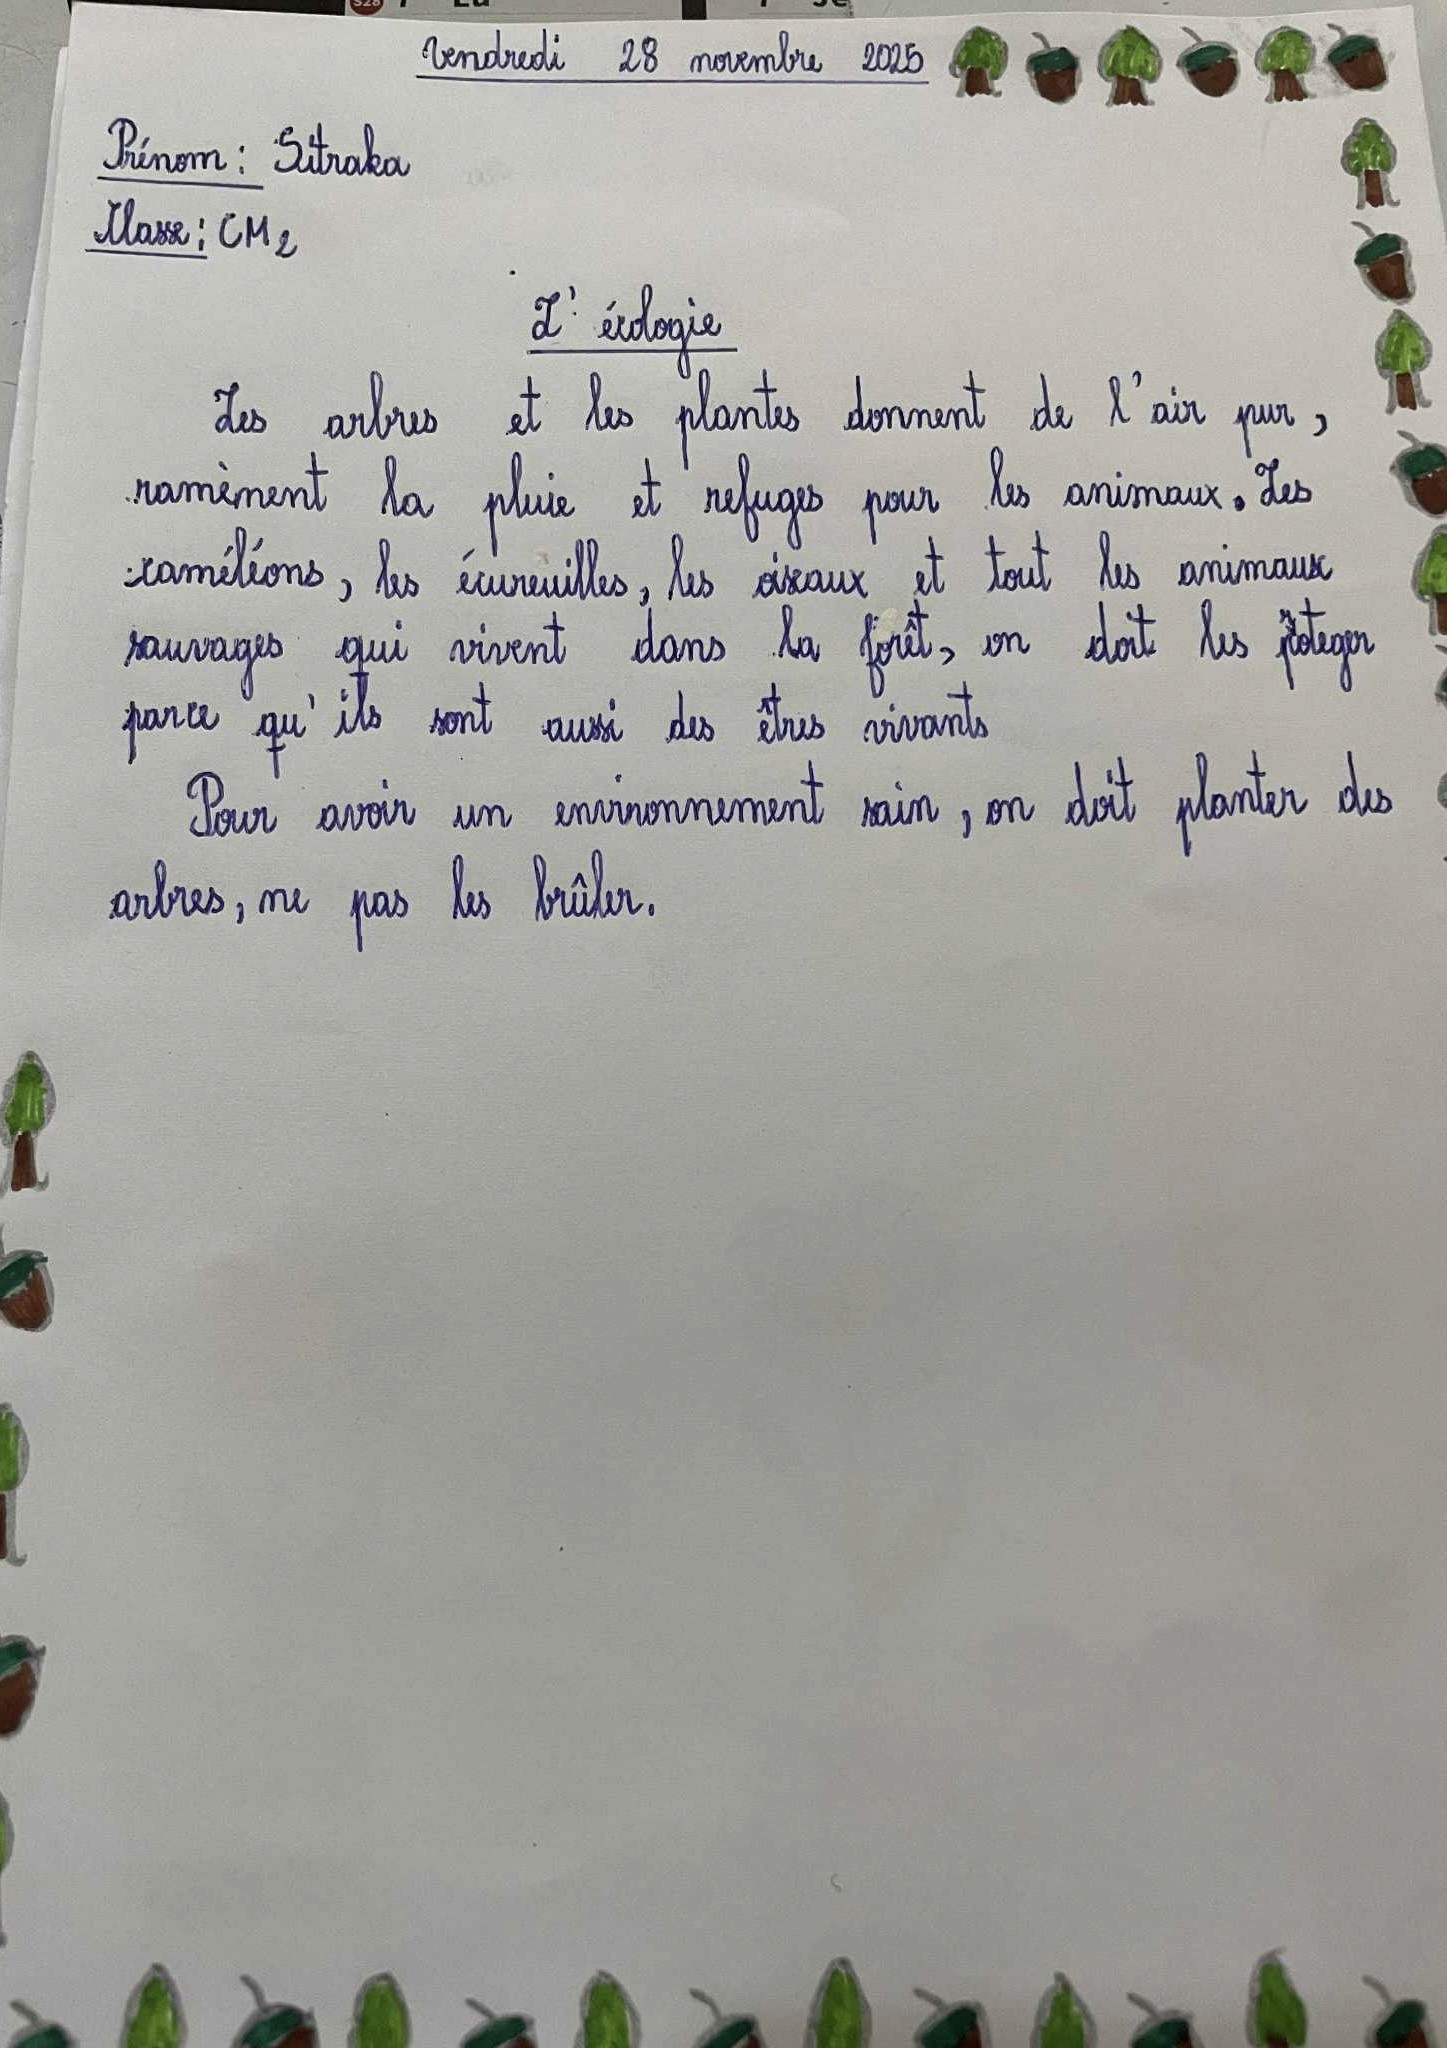 Vendredi 28 novembre 2025
Prénom : Sitraka
Classe : CM2
L'écologie
Les arbres et les plantes donnent de l'air pur,
ramènent la pluie et refuges pour les animaux. Les
caméléons, les écureuilles, les oiseaux et tout les animaux
sauvages qui vivent dans la forêt, on doit les protéger
parce qu'ils sont aussi des êtres vivants
Pour avoir un environnement sain, on doit planter des
arbres, ne pas les brûler.